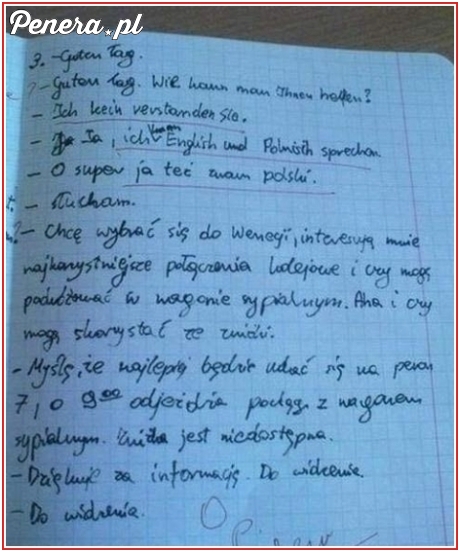 Penera.pl
3. - Guten Tag.
- Guten Tag. Wie kann man Ihnen helfen?
- Ich kein verstanden Sie.
- Ja, ich kann English und Polnisch sprechen.
- O super ja też znam polski.
- Słucham.
- Chcę wybrać się do Wenecji, interesują mnie
najkorzystniejsze połączenia kolejowe i czy mogę
podróżować w wagonie sypialnym. Aha i czy
mogę skorzystać ze zniżki.
- Myślę, że najlepiej będzie udać się na peron
7, o 9:00 odjeżdża pociąg z wagonem
sypialnym. Zniżka jest niedostępna.
- Dziękuję za informację. Do widzenia.
- Do widzenia.